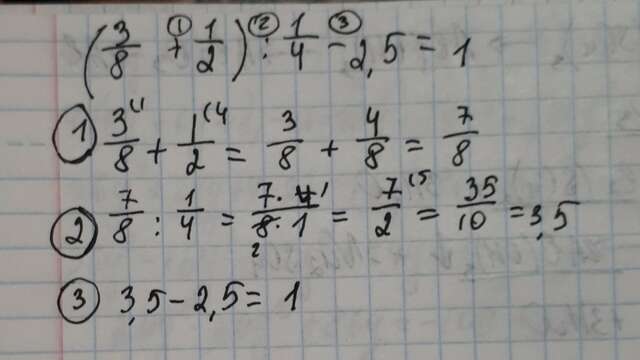 (3/8 +① 1/2) :② 1/4 -③ 2,5 = 1
① 3⁽¹/8 + 1⁽⁴/2 = 3/8 + 4/8 = 7/8
② 7/8 : 1/4 = 7·4¹/8₂·1 = 7⁽⁵/2 = 35/10 = 3,5
③ 3,5 - 2,5 = 1